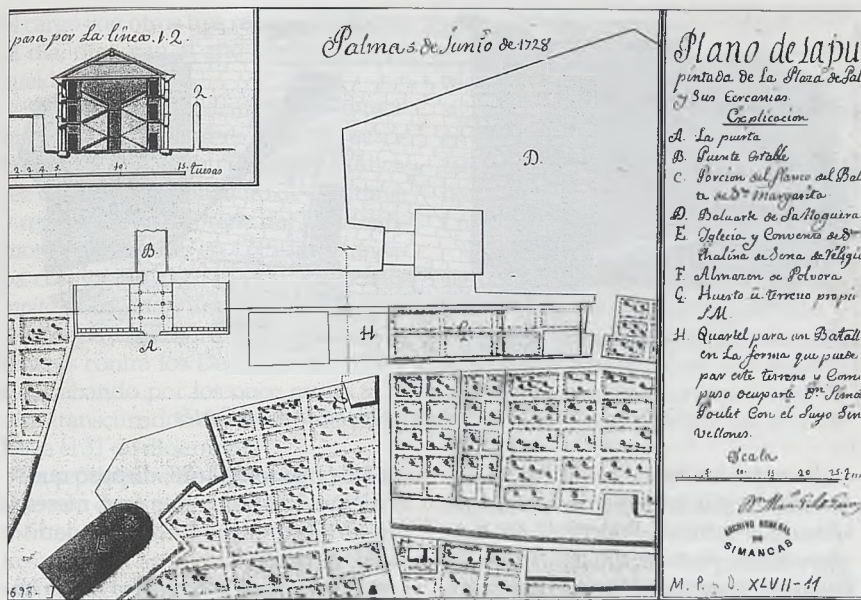 pasa por La linea. 1. 2.
2
15. tuesas
10.
Palma 5 de Junio de 1728
D.
B
A
H
G
698-
Plano de la pu
pintada de La Plaza de Pal
y Sus Cercanias
Explicacion
A. La puerta
B. Puente estable
C. Porcion del flanco del Balu
te de Sta Margarita
D. Baluarte de
E. Iglecia y Convento de Sta
thalina de Sena de Religio
F. Almazen de Polvora
G. Huerto u terreno propi
S.M.
H. Quartel para un Batall
en La forma que puede
par este terreno u Com
puso ocuparle Dn
Poulet Con el Suyo
Vellones.
Scala
5. 10. 15. 20 25. t
ARCHIVO GENERAL
DE
SIMANCAS
M. P. y D. XLVII-11